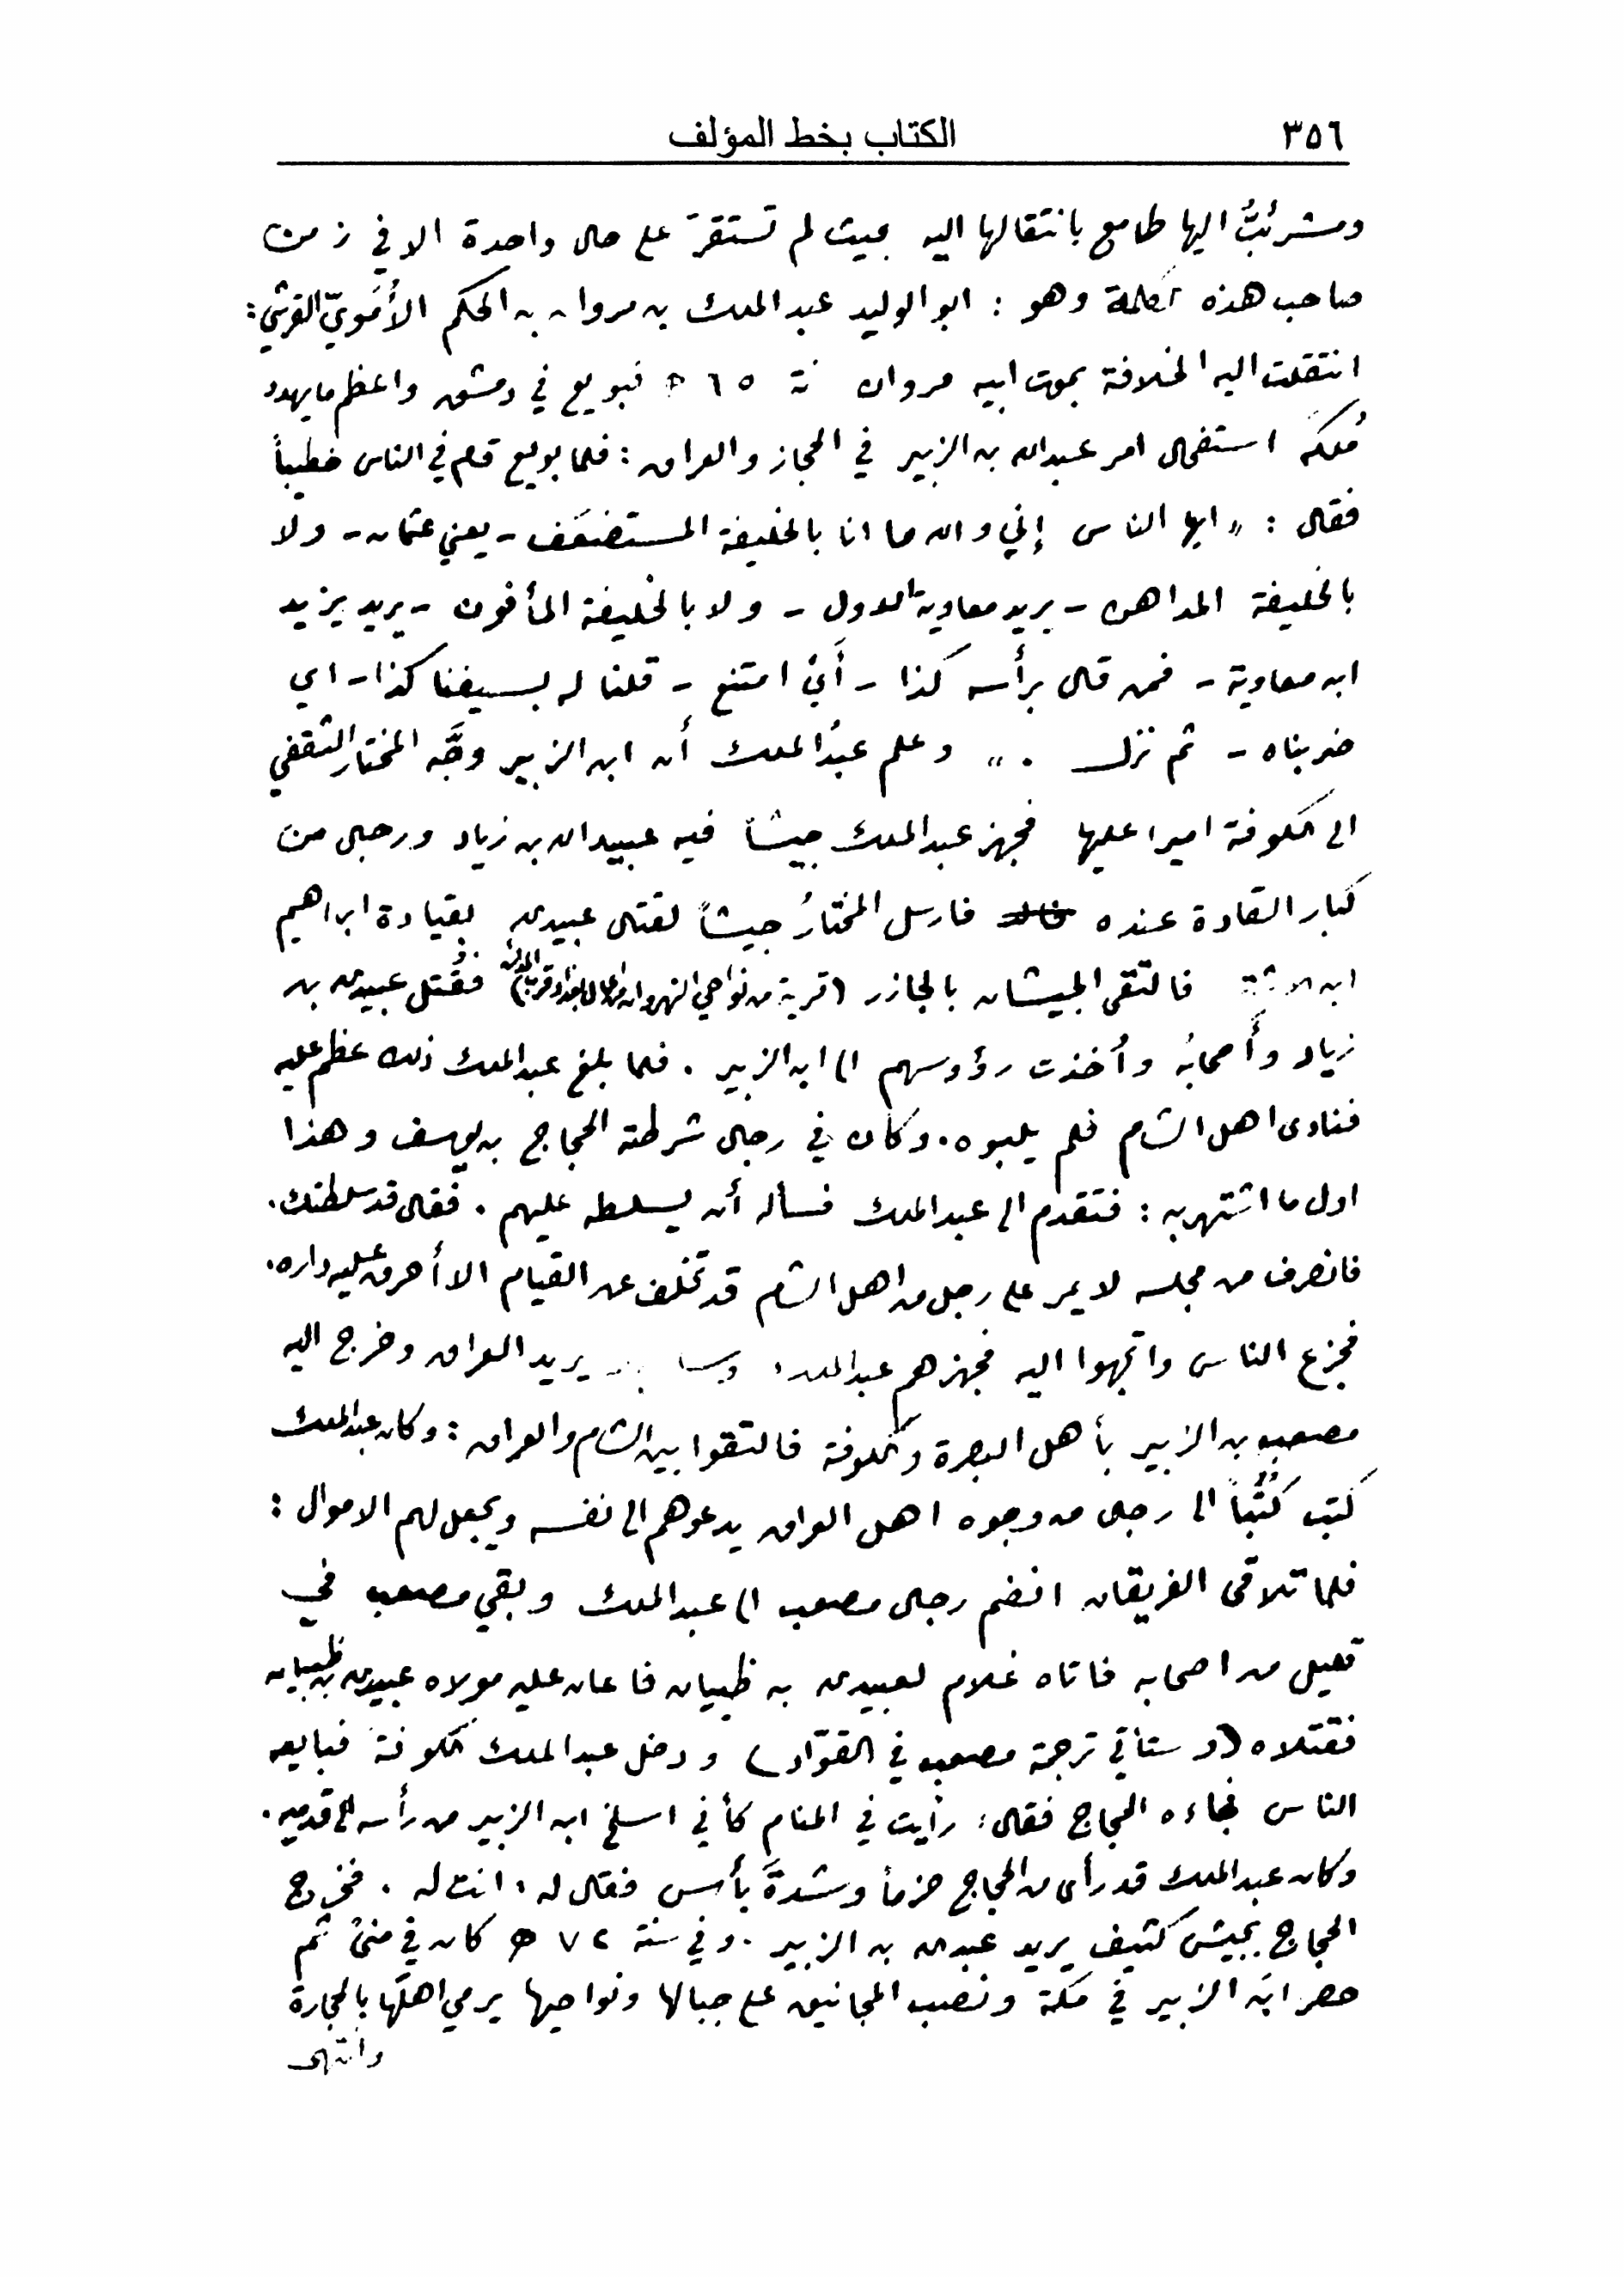 ٣٥٦ الكتاب بخط المؤلف
ومشرئبٌّ اليها طامع بانتقالها اليه بحيث لم تستقرّ على حال واحدة الا في زمن
صاحب هذه الكلمة وهو : ابو الوليد عبد الملك بن مروان بن الحكم الأُمَويّ القرشي :
انتقلت اليه الخلافة بموت ابيه مروان سنة ٦٥ ﻫ فبويع في دمشق واعظم ما يهدد
مُلكه استفحال امر عبدالله بن الزبير في الحجاز والعراق : فلما بويع قام في الناس خطيباً
فقال : " ايها الناس إني والله ما انا بالخليفة المستضعَف - يعني عثمان - ولا
بالخليفة المداهن - يريد معاوية الاول - ولا بالخليفة المأفون - يريد يزيد
ابن معاوية - فمن قال برأسه كذا - أَيْ امتنع - قلنا له بسيفنا كذا - اي
ضربناه - ثم نزل . " وعلم عبدُ الملك أن ابن الزبير وجَّه المختار الثقفي
الى الكوفة اميرا عليها فجهز عبد الملك جيشاً فيه عبيدالله بن زياد ورجال من
كبار القادة عنده فارسل المختارُ جيشاً لقتال عبيدالله بقيادة ابراهيم
ابن الاشتر فالتقى الجيشان بالجازر (قرية من نواحي النهروان من اعمال بغداد قرب المدائن) فقُتل عبيدالله بن
زياد وأَصحابُه وأُخذت رؤوسهم الى ابن الزبير . فلما بلغ عبد الملك ذلك عظم عليه
فنادى اهل الشام فلم يلبوه . وكان في رجال شرطته الحجاج بن يوسف وهذا
اول ما اشتهر به : فتقدم الى عبد الملك فسأله أن يسلطه عليهم . فقال قد سلطتك .
فانصرف من مجلسه لا يمر على رجل من اهل الشام قد تخلف عن القيام الا أحرق عليه داره .
فجزع الناس واتجهوا اليه فجهزهم عبد الملك يريد العراق وخرج اليه
مصعب بن الزبير بأهل البصرة والكوفة فالتقوا بين الشام والعراق : وكان عبد الملك
كتب كُتُباً الى رجال من وجوه اهل العراق يدعوهم الى نفسه ويجعل لهم الاموال :
فلما تلاقى الفريقان انضم رجال مصعب الى عبد الملك وبقي مصعب في
قليل من اصحابه فاتاه غلام لعبيدالله بن ظبيان فاعان عليه مولاه عبيدالله بن ظبيان
فقتلاه (وستأتي ترجمة مصعب في القوّاد) ودخل عبد الملك الكوفة فبايعه
الناس فجاءه الحجاج فقال : رأيت في المنام كأني اسلخ ابن الزبير من رأسه الى قدميه .
وكان عبد الملك قد رأى من الحجاج حزماً وشدةَ بأس فقال له ، انت له . فخرج
الحجاج بجيش كثيف يريد عبدالله بن الزبير . وفي سنة ٧٢ ﻫ كان في منىً ثم
حصر ابن الزبير في مكة ونصب المجانيق على جبالها ونواحيها يرمي اهلَها بالحجارة
وانتهى